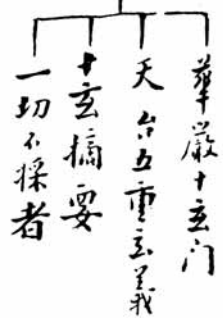 華严十玄门
天台五重玄義
十玄摘要
一切不採者